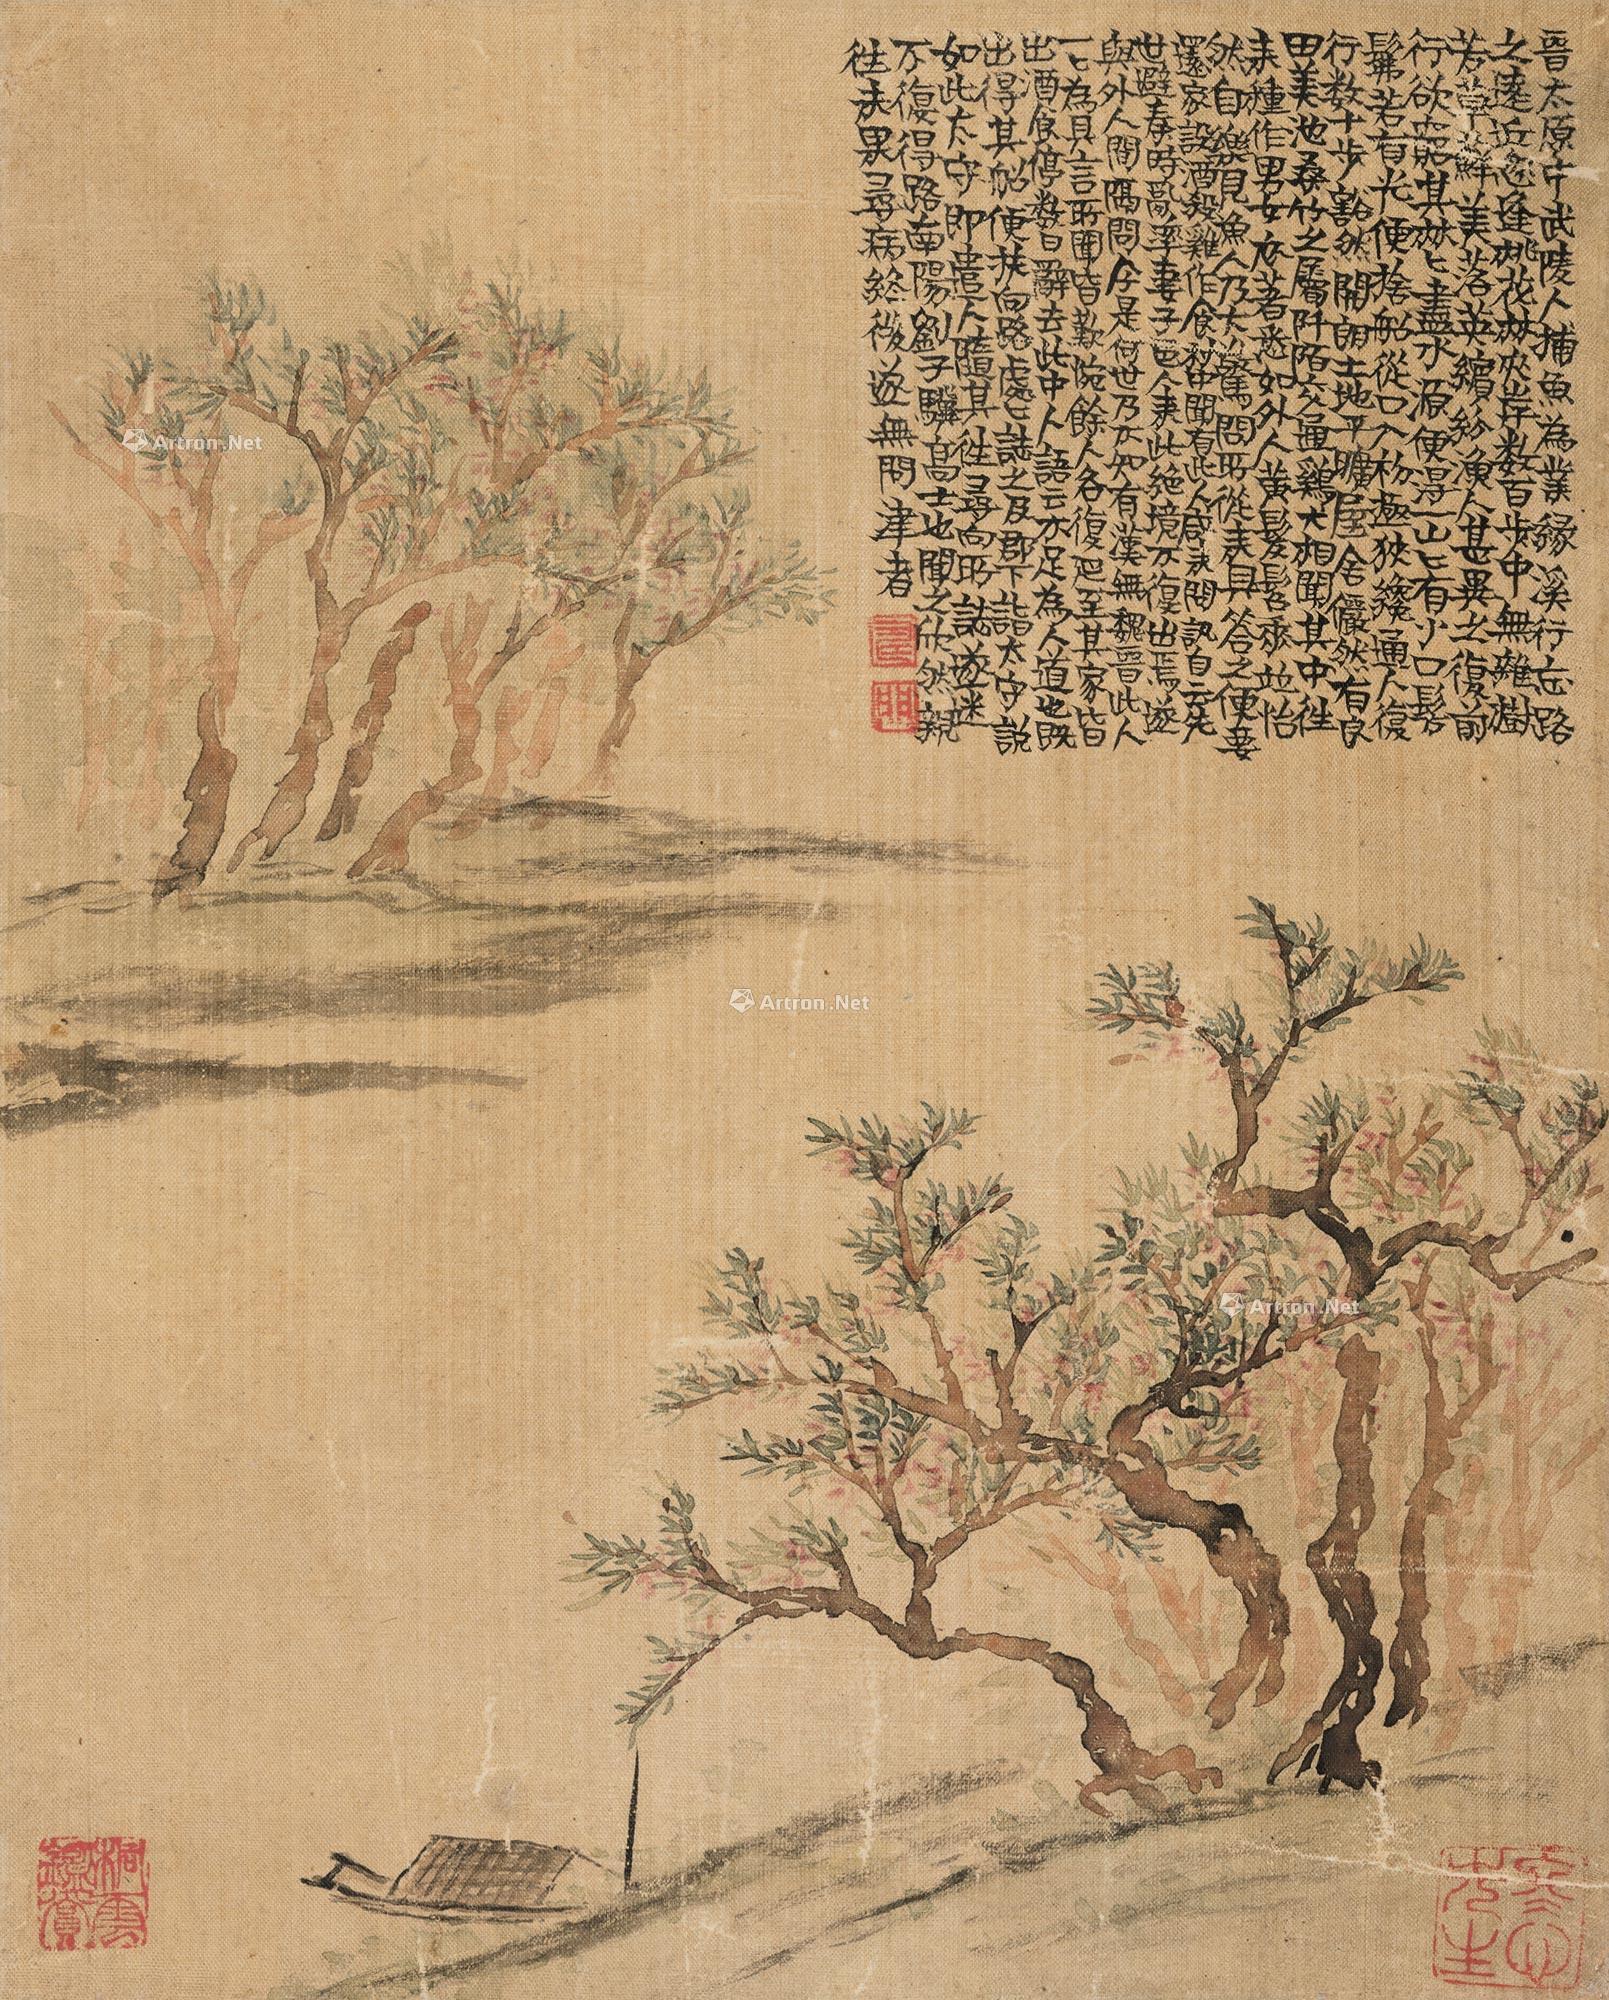 晉太原中武陵人捕魚為業緣溪行忘路
之遠近忽逢桃花林夾岸数百步中無雜樹
芳草鮮美落英繽紛漁人甚異之復前
行欲窮其林々盡水源便得一山々有小口髣
髴若有光便捨船從口入初極狹纔通人復
行数十步豁然開朗土地平曠屋舍儼然有良
田美池桑竹之屬阡陌交通鷄犬相聞其中往
来種作男女衣著悉如外人黄髮髫垂並怡
然自樂見漁人乃大驚問所從来具答之便要
還家設酒殺雞作食村中聞有此人咸来問訊自云先
世避秦時亂率妻子邑人来此絶境不復出焉遂
與外人間隔問今是何世乃不知有漢無魏晉此人
一々為具言所聞皆歎惋餘人各復延至其家皆
出酒食停数日辭去此中人語云不足為人道也既
出得其船便扶向路處々誌之及郡下詣太守說
如此太守即遣人隨其往尋向所誌遂迷
不復得路南陽劉子驥高士也聞之欣然親
往未果尋病終後遂無問津者
Artron.Net
Artron.Net
Artron.Net